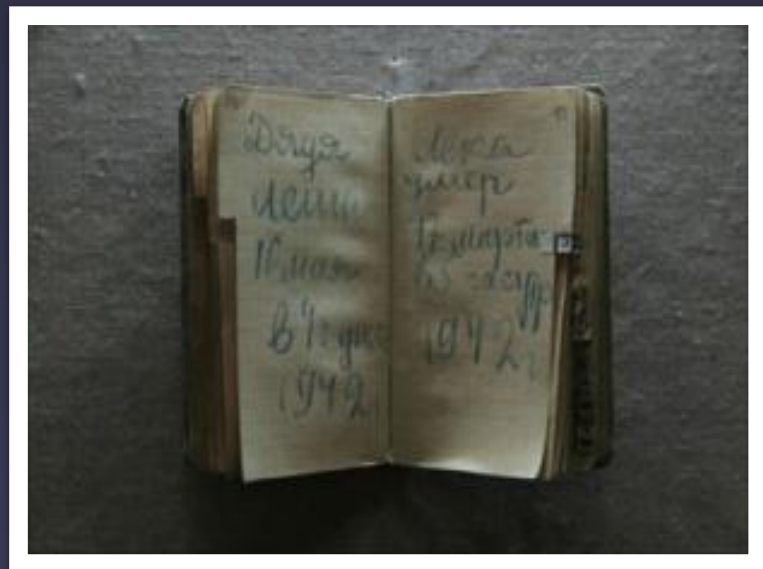 Дядя
Леша
10 мая
в 4 ч дня
1942
Лека
умер
17 марта
в 5 час утр
1942 г